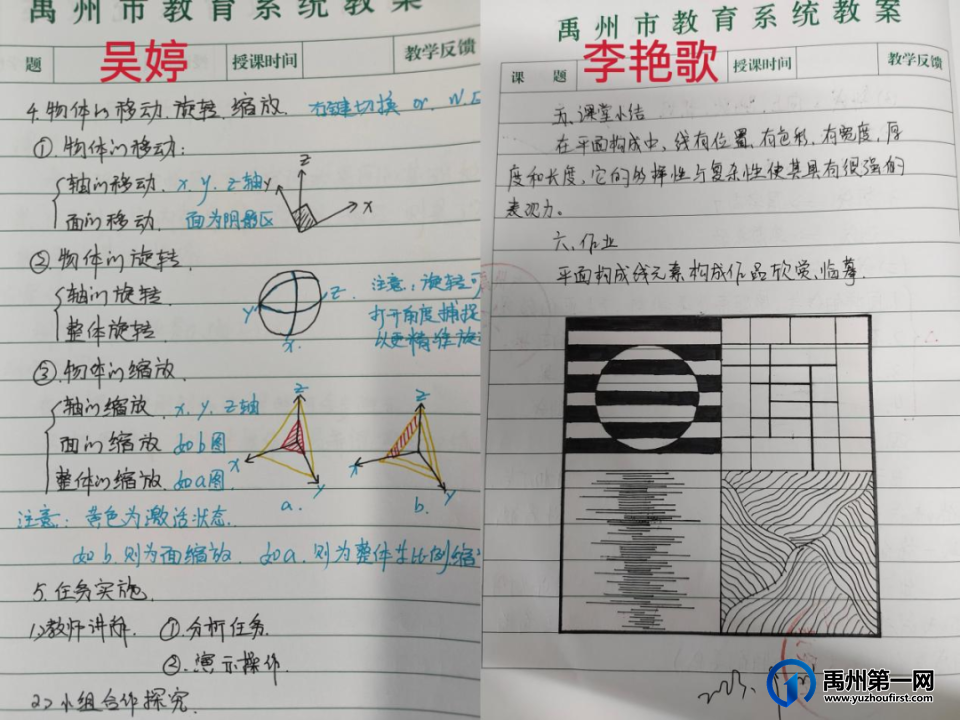 禹州市教育系统教案
题
吴婷
授课时间
教学反馈
4.物体的移动.旋转.缩放. 右键切换 or. W.E
①.物体的移动:
轴的移动. x. y. z轴
面的移动. 面为阴影区
z
y
x
②.物体的旋转.
轴的旋转.
整体旋转.
y
z
x
注意:旋转可
打开角度捕捉
以更精准旋
③.物体的缩放.
轴的缩放. x. y. z轴
面的缩放 如b图
整体的缩放.如a图.
z
x
y
a.
z
x
y
b.
注意:黄色为激活状态.
如b.则为面缩放. 如a.则为整体等比例缩
5.任务实施.
1>教师讲解. ①.分析任务.
②.演示操作.
2>小组合作探究.
禹州市教育系统教案
课 题
李艳歌
授课时间
教学反馈
五.课堂小结
在平面构成中,线有位置.有色彩.有宽度,厚
度和长度,它的多样性与复杂性使其具有很强的
表现力。
六.作业
平面构成线元素构成作品欣赏.临摹.
禹州第一网
www.yuzhoufirst.com